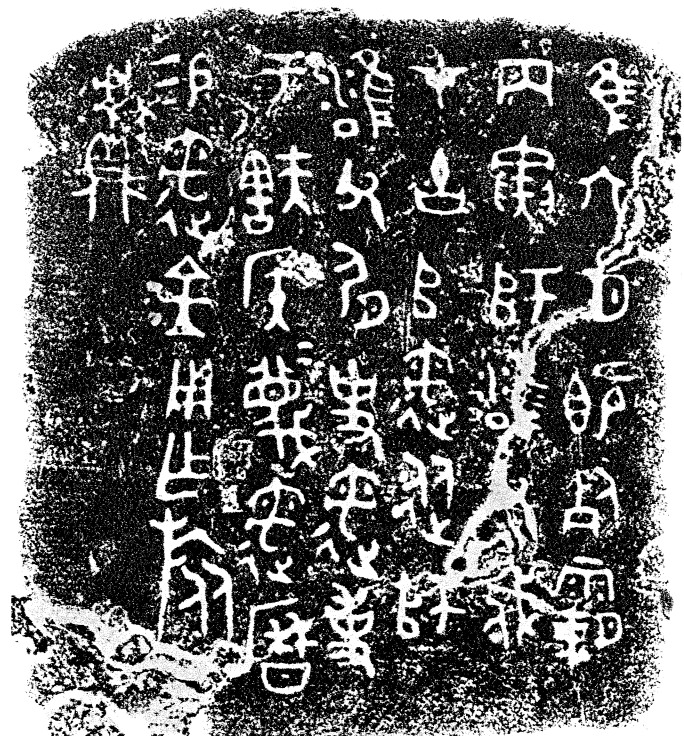 隹六月既死霸
丙寅師雝父戍
才古𠂤遇從師
雝父肩史遇事
于㝬侯=蔑遇曆
易遇金用乍旅
甗